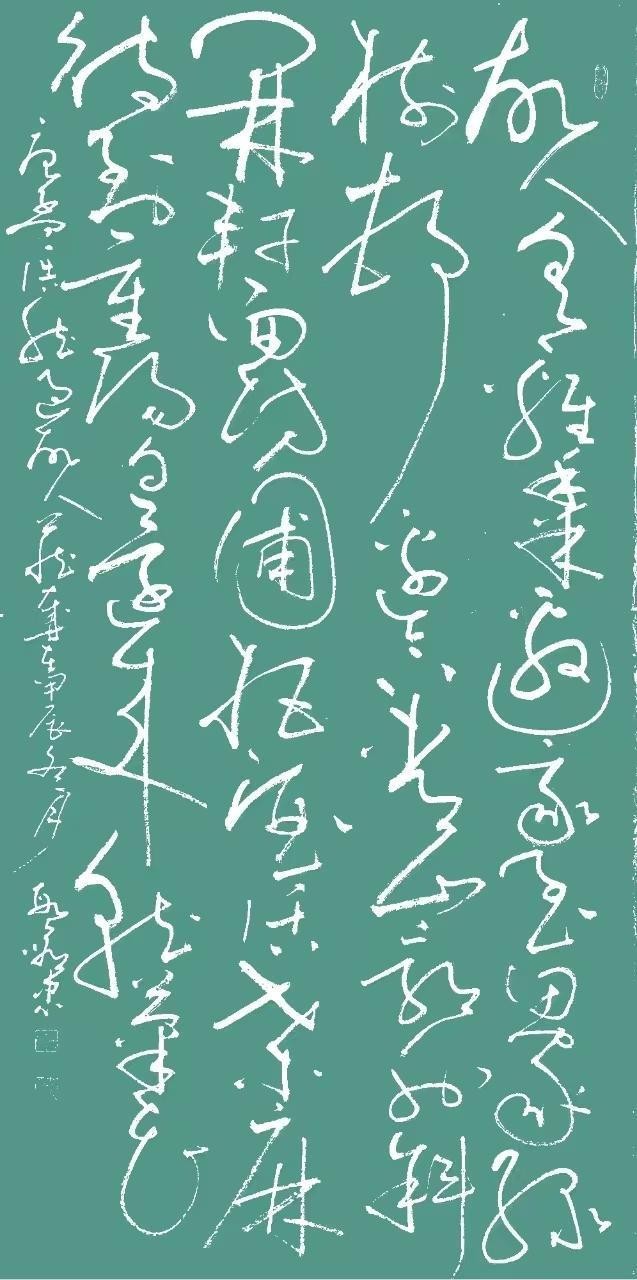 故人具雞黍邀我至田家綠
樹村邊合青山郭外斜
開軒面場圃把酒話桑麻
待到重陽日還來就菊花
唐孟浩然過故人莊歲在甲辰冬月